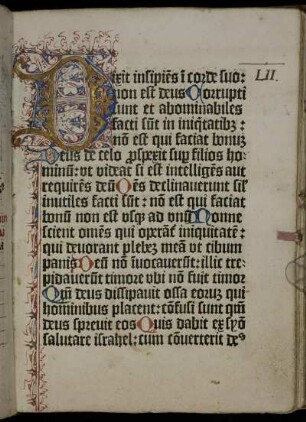 LII.
Dixit insipiēs ī corde suo:
non est deus Corrupti
sunt et abominabiles
facti sūt in iniq̄tatibꝫ:
nō est qui faciat bonuꝫ
Deus de celo ꝓspexit sup filios ho-
minū: vt videat si est intelligēs aut
requirēs deū Oēs declinauerunt sil̄
inutiles facti sūt: nō est qui faciat
bonū non est vsqꝫ ad vnū Nonne
scient omēs qui operāt̄ iniquitatē:
qui deuorant plebeꝫ meā vt cibum
panis Deū nō īuocauerūt: illic tre-
pidauerūt timore vbi nō fuit timor
Qm̄ deus dissipauit ossa eoruꝫ qui
hominibus placent: cōfusi sunt qm̄
deus spreuit eos Quis dabit ex syō
salutare israhel: cum cōuerterit deꝰ